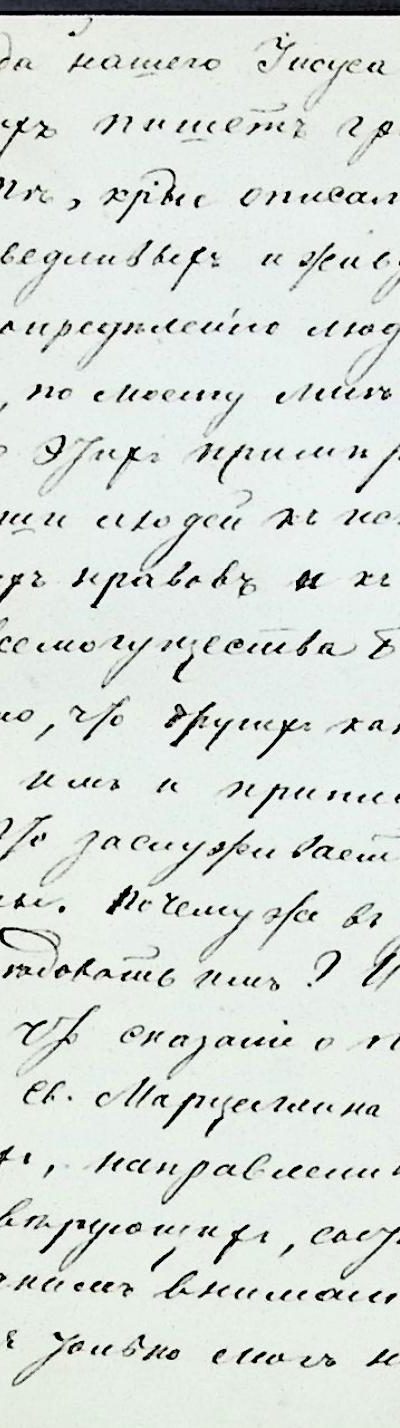 да нашего Іисуса
хъ пишетъ гр
, крые описал
ведливыхъ и живу
опредѣленію люд
, по моему мнѣ
этихъ примѣр
ши людей къ ис
хъ нравовъ и къ
всемогущества Б
но, что другихъ ка
имъ и припис
то заслуживает
ны. Почему же въ
довать имъ? И
что сказаніе о п
св. Марцеллина
, направленн
вѣрующихъ, со
внимані
только могъ н